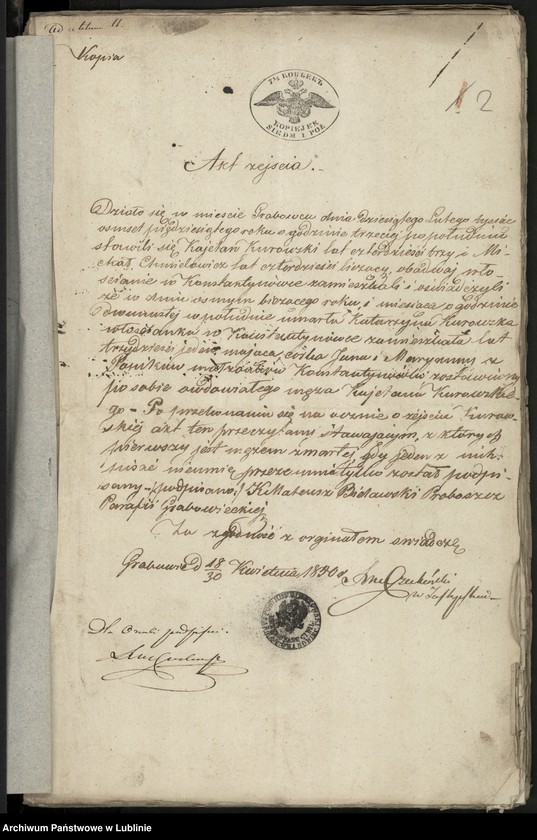 Kopia
2
7½ КОПѢЕКЪ
KOPIEJEK
SIEDM I PÓŁ
Akt zejścia.
Działo się w mieście Grabowcu dnia dziesiątego Lutego tysiąc
osmset pięćdziesiątego roku o godzinie trzeciej po południu
stawili się Kajetan Kurowski lat czterdzieści trzy i Mi-
chał Chmielowicz lat czterdzieści liczący, obadwaj wło-
ścianie w Konstantynówce zamieszkali i oświadczyli
że w dniu osmym bieżącego roku i miesiąca o godzinie
dwunastej w południe umarła Katarzyna Kurowska
włościanka w Konstantynówce zamieszkała lat
trzydzieści jeden mająca, córka Jana i Maryanny z
małżonków Konstantynówki zostawiwszy
po sobie owdowiałego męża Kajetana Kurowskie-
go - Po przekonaniu się na ocznie o zejściu Kurow-
skiej akt ten przeczytany stawającym, z których
pierwszy jest mężem zmarłej, gdy jeden z nich
pisać nieumie przezemnie tylko został podpi-
sany - (podpisano) X. Mateusz Bielawski Proboszcz
Parafii Grabowieckiej
Za zgodność z orginałem świadczę
Grabowiec d 18/30 Kwietnia 1850 r.
Dla